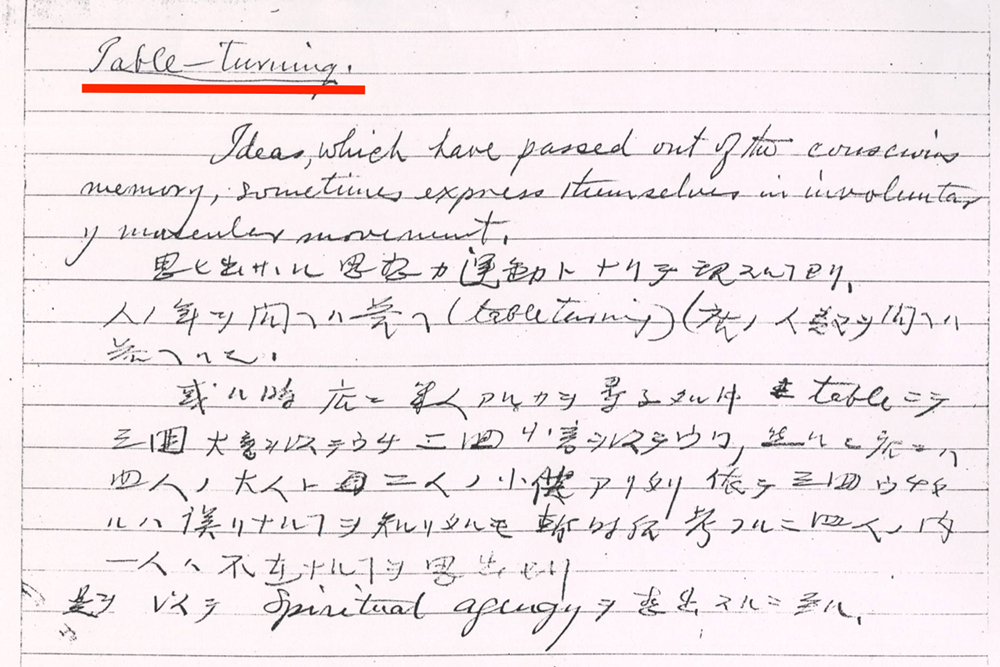 Table-turning.
Ideas, which have passed out of the conscious
memory, sometimes express themselves in involuntar
y muscular movement.
思ヒ出サルル思想カ運動トナリテ現スルヿアリ,
人ノ年ヲ問ヘハ答ヘ (table turning) (家ノ人数ヲ問ヘハ
答ヘルヒ.
或ル時 家ニ幾人アルカヲ尋子タル件 table ニテ
三回大音ヲ以テウチ二回小音ヲ以テウツ,
四人ノ大人ト二人ノ小供アリタリ依テ三回ウチタ
ルハ誤リナルヿヲ知リタルモ暫時后考フルニ四人ノ内
一人ハ不在ナルヿヲ思出セリ
是ヲ以テ Spiritual agency ヲ スルニ至ル.